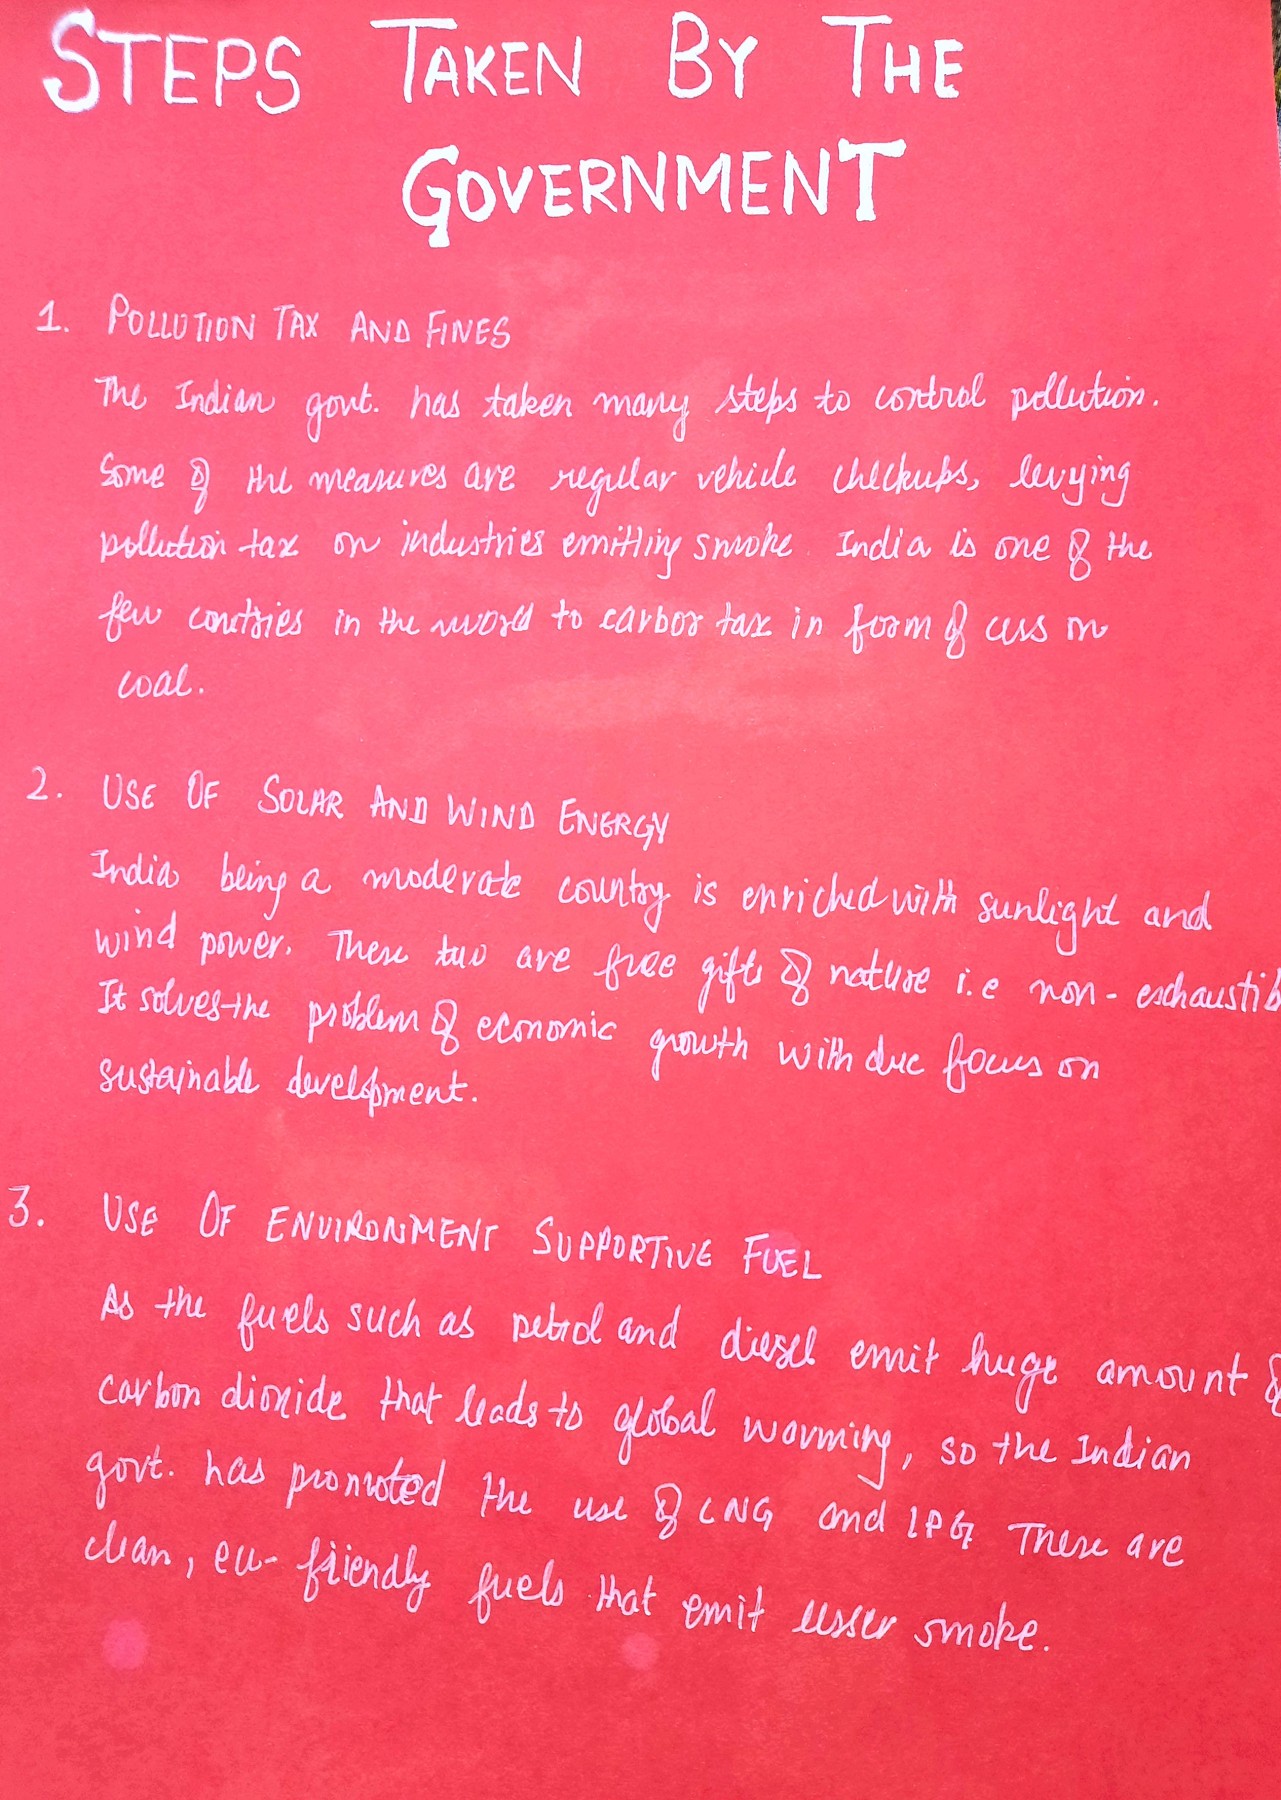 STEPS TAKEN BY THE
GOVERNMENT
1. POLLUTION TAX AND FINES
The Indian govt. has taken many steps to control pollution.
Some of the measures are regular vehicle checkups, levying
pollution tax on industries emitting smoke. India is one of the
few countries in the world to carbon tax in form of cess on
coal.
2. USE OF SOLAR AND WIND ENERGY
India being a moderate country is enriched with sunlight and
wind power. These two are free gifts of nature i.e non-exhaustib
It solves the problem of economic growth with due focus on
sustainable development.
3. USE OF ENVIRONMENT SUPPORTIVE FUEL
As the fuels such as petrol and diesel emit huge amount of
carbon dioxide that leads to global warming, so the Indian
govt. has promoted the use of CNG and LPG These are
clean, eco-friendly fuels that emit lesser smoke.